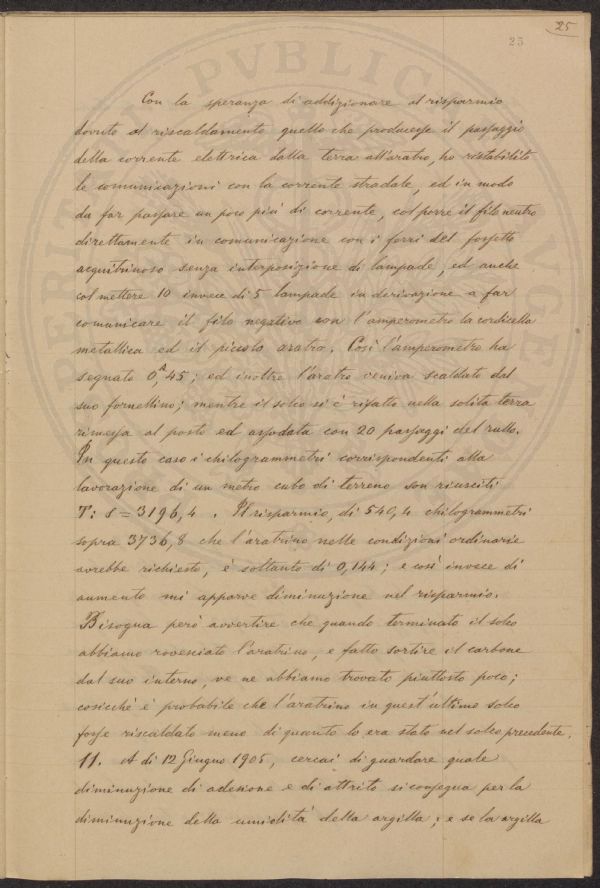 25
25
Con la speranza di addizionare al risparmio
dovuto al riscaldamento quello che producesse il passaggio
della corrente elettrica dalla terra all'aratro, ho ristabilito
le comunicazioni con la corrente stradale, ed in modo
da far passare un poco più di corrente, col porre il filo neutro
direttamente in comunicazione con i ferri del fossetto
acquitrinoso senza interposizione di lampade, ed anche
col mettere 10 invece di 5 lampade in derivazione a far
comunicare il filo negativo con l'amperometro la cordicella
metallica ed il piccolo aratro. Così l'amperometro ha
segnato 0,ᴬ45; ed inoltre l'aratro veniva scaldato dal
suo fornellino; mentre il solco si è rifatto nella solita terra
rimessa al posto ed assodata con 20 passaggi del rullo.
In questo caso i chilogrammetri corrispondenti alla
lavorazione di un metro cubo di terreno son riusciti
T: S = 3196,4. Il risparmio, di 540,4 chilogrammetri
sopra 3736,8 che l'aratrino nelle condizioni ordinarie
avrebbe richiesto, è soltanto di 0,144; e così invece di
aumento mi apparve diminuzione nel risparmio.
Bisogna però avvertire che quando terminato il solco
abbiamo rovesciato l'aratrino, e fatto sortire il carbone
dal suo interno, ve ne abbiamo trovato piuttosto poco;
cosicchè è probabile che l'aratrino in quest'ultimo solco
fosse riscaldato meno di quanto lo era stato nel solco precedente.
11. A dì 12 Giugno 1905, cercai di guardare quale
diminuzione di adesione e di attrito si consegua per la
diminuzione della umidità della argilla; e se la argilla